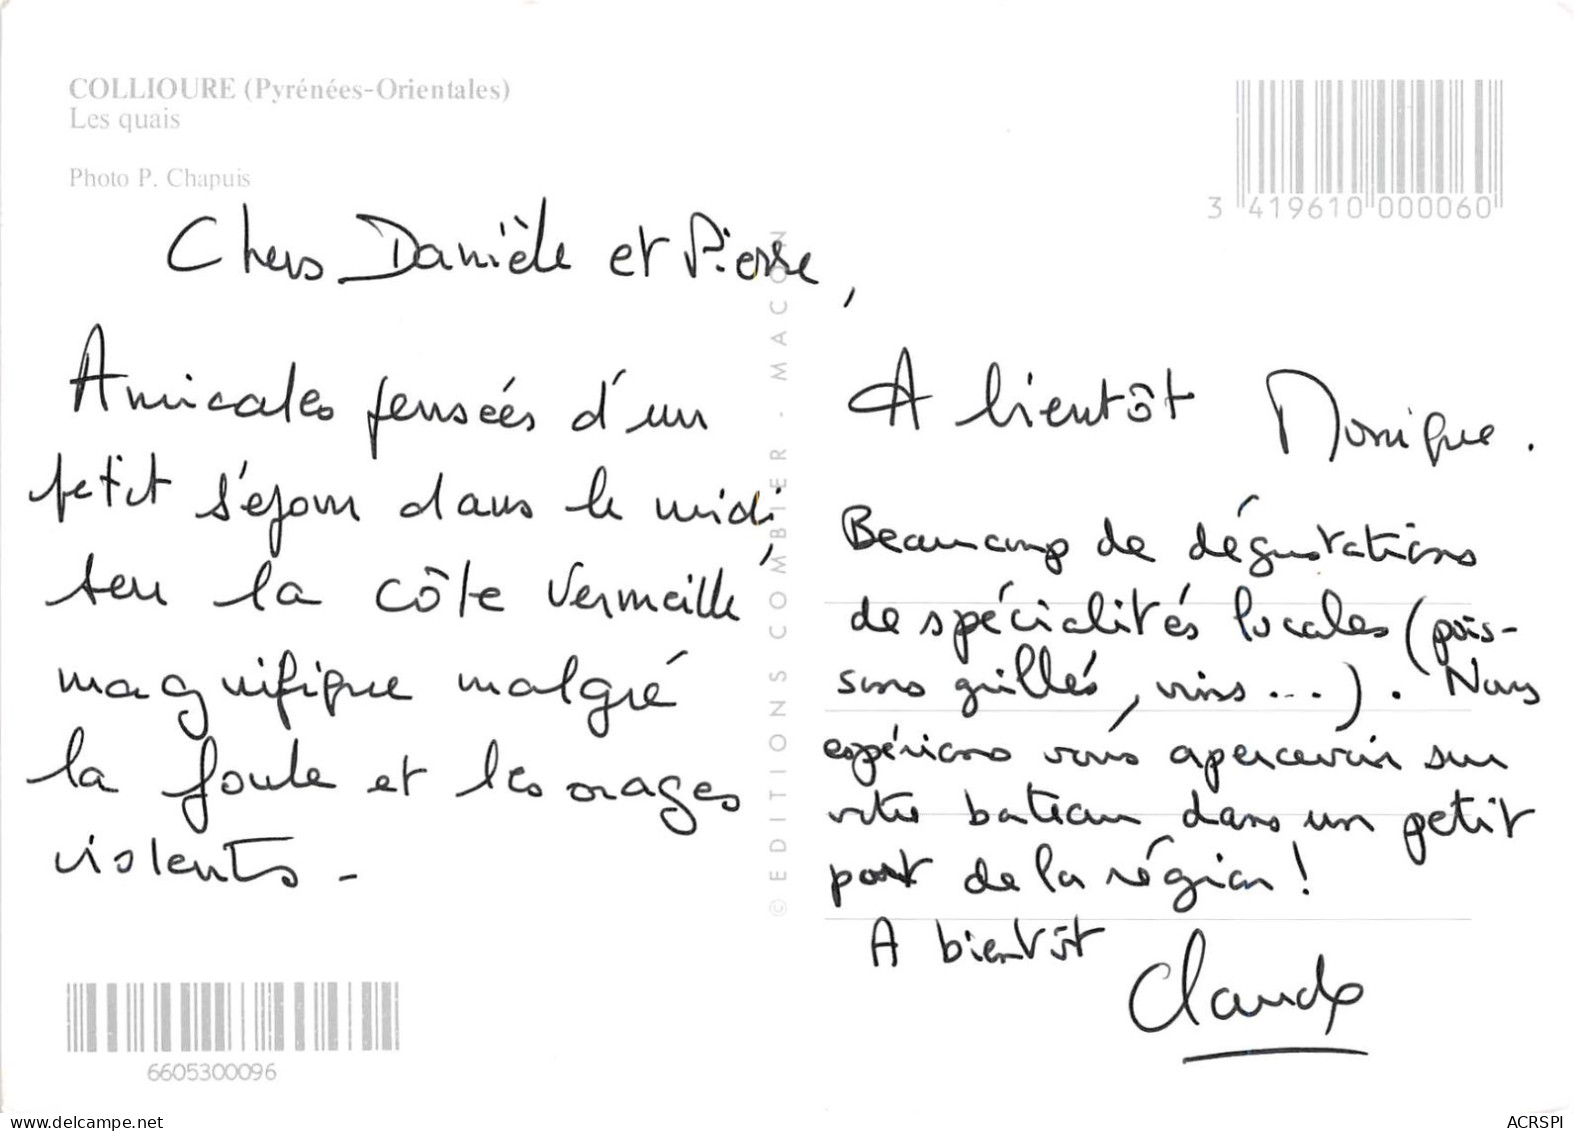 COLLIOURE (Pyrénées-Orientales)
Les quais
Photo P. Chapuis
3 419610 000060
Chers Danièle et Pierre,
Amicales pensées d'un
petit séjour dans le midi
sur la côte Vermeille,
magnifique malgré
la foule et les orages
violents -
© EDITIONS COMBIER - MACON
A bientôt Monique.
Beaucoup de dégustations
de spécialités locales (pois-
sons grillés, vins...). Nous
espérions vous apercevoir sur
votre bateau dans un petit
port de la région !
A bientôt
Claude
6605300096
www.delcampe.net
ACRSPI